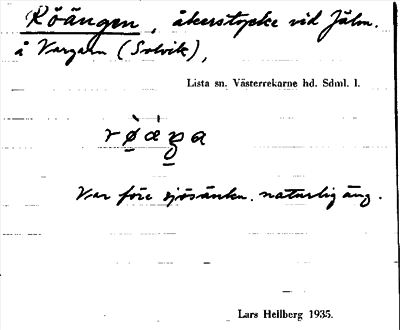 Röängen, åkerstycke vid Jälm.
å Vargarn (Solvik),
Lista sn. Västerrekarne hd. Sdml. l.
Var före sjösänkn. naturlig äng.
Lars Hellberg 1935.